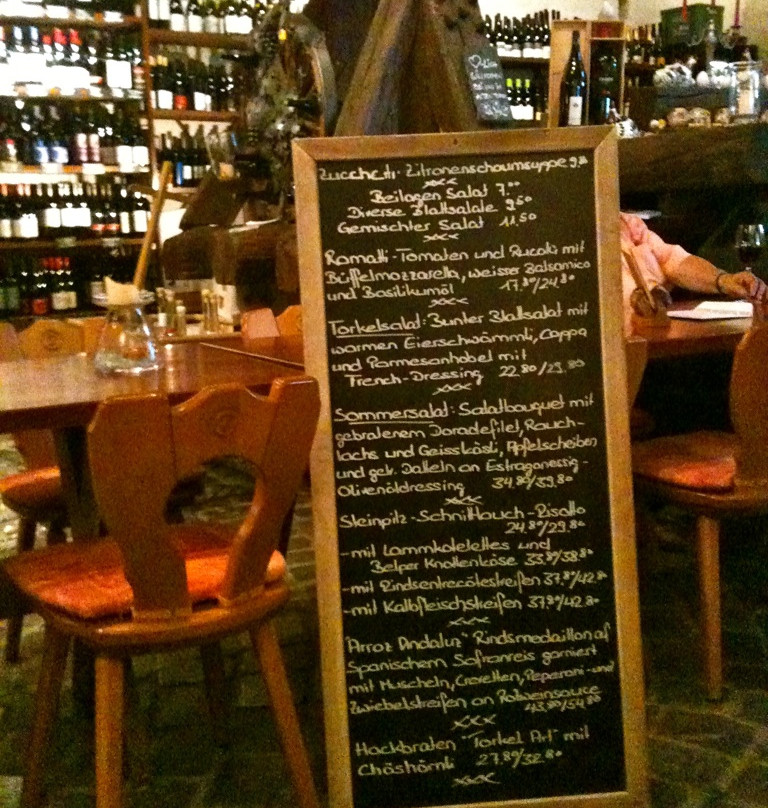 Zucchetti-Zitronenschaumsuppe 9.80
xxx
Beilagen Salat 7.00
Diverse Blattsalate 9.50
Gemischter Salat 11.50
xxx
Ramatti-Tomaten und Rucola mit
Büffelmozzarella, weisser Balsamico
und Basilikumöl 17.80/24.80
xxx
Torkelsalat: Bunter Blattsalat mit
warmen Eierschwämmli, Coppa
und Parmesanhobel mit
French-Dressing 22.80/29.80
xxx
Sommersalat: Salatbouquet mit
gebratenem Doradefilet, Rauch-
lachs und Geisskäsli, Apfelscheiben
und getr. Datteln an Estragonessig-
Olivenöldressing 34.80/39.80
xxx
Steinpilz-Schnittlauch-Risotto
24.80/29.80
-mit Lammkotelettes und
Belper Knollenkäse 33.80/38.80
-mit Rindsentrecôtestreifen 37.80/42.80
-mit Kalbfleischstreifen 37.80/42.80
xxx
"Arroz Andaluz" Rindsmedaillon auf
Spanischem Safranreis garniert
mit Muscheln, Crevetten, Peperoni-und
Zwiebelstreifen an Rotweinsauce
43.80/54.80
xxx
Hackbraten "Torkel Art" mit
Chäshörnli 27.80/32.80
xxx